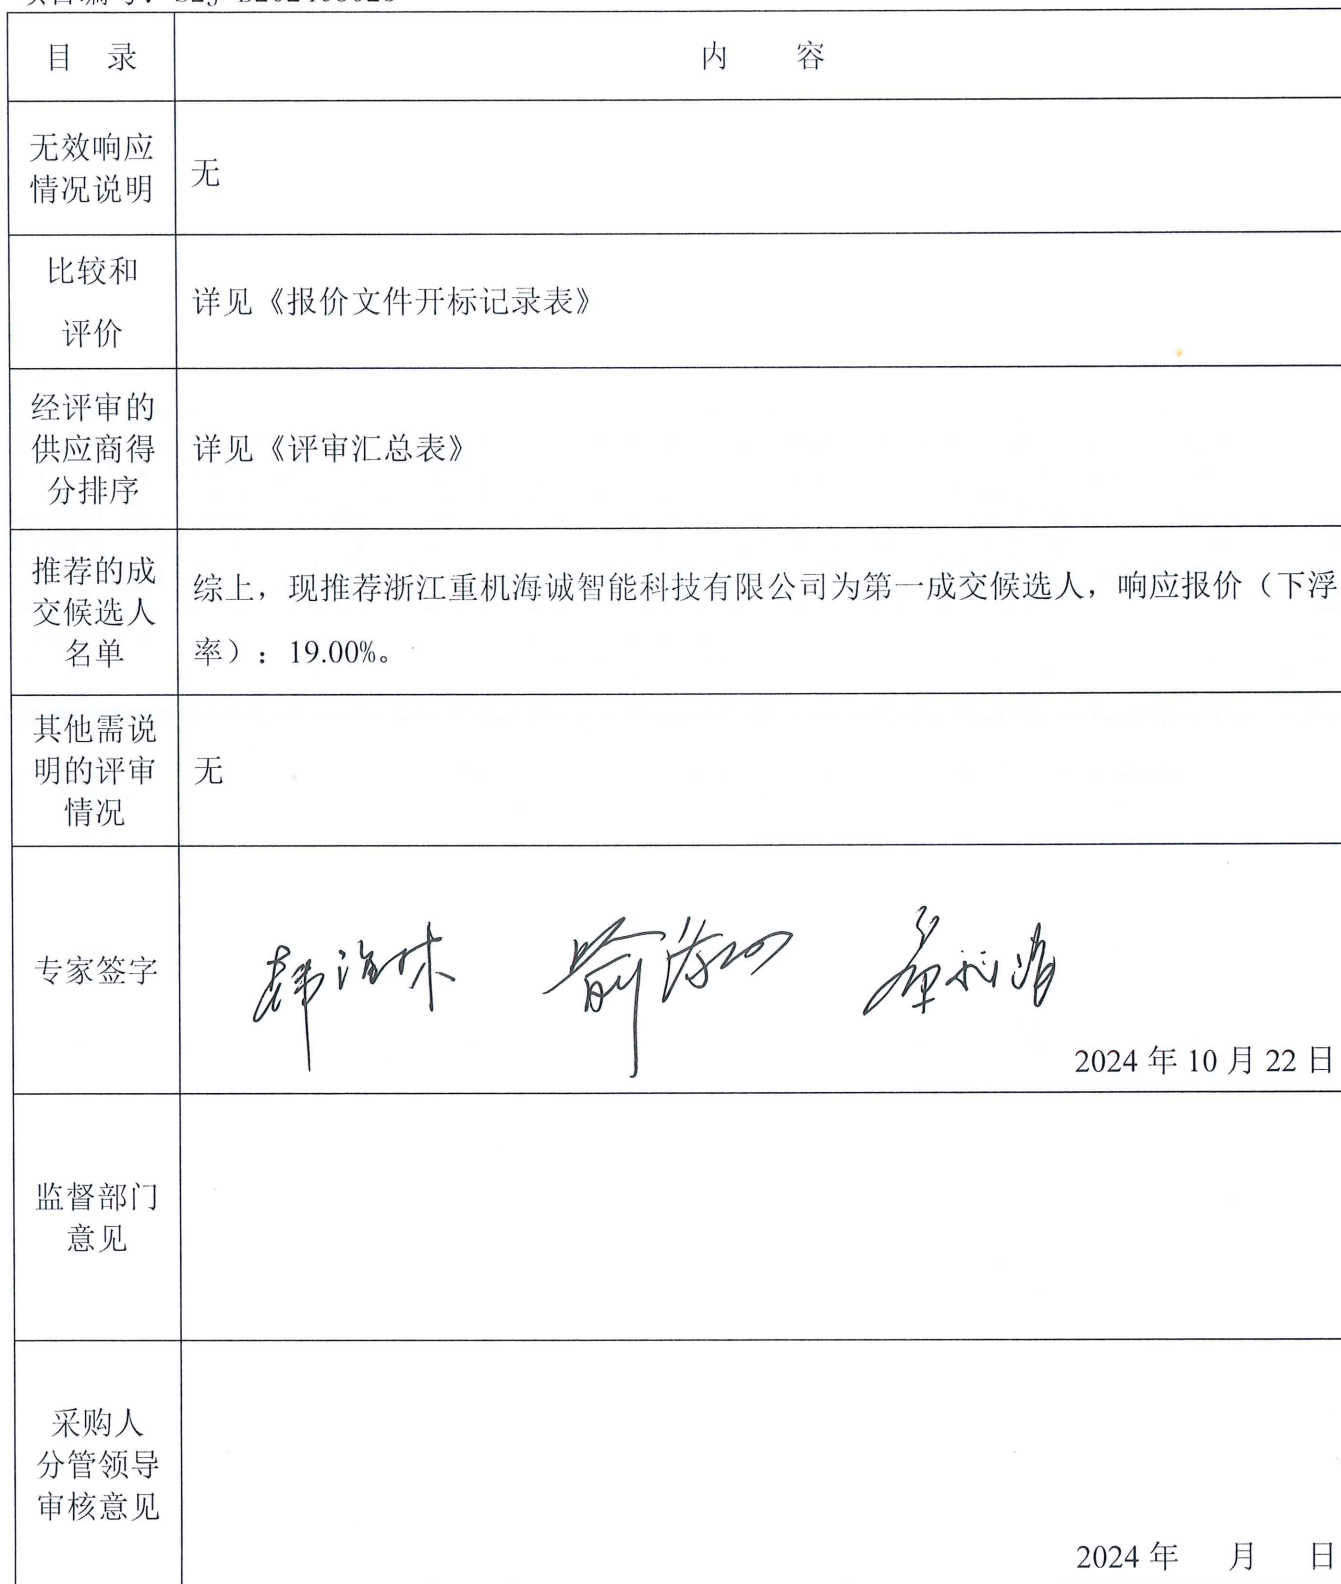 目 录
内 容
无效响应
情况说明
无
比较和
评价
详见《报价文件开标记录表》
经评审的
供应商得
分排序
详见《评审汇总表》
推荐的成
交候选人
名单
综上，现推荐浙江重机海诚智能科技有限公司为第一成交候选人，响应报价（下浮
率）：19.00%。
其他需说
明的评审
情况
无
专家签字
2024 年 10 月 22 日
监督部门
意见
采购人
分管领导
审核意见
2024 年 月 日